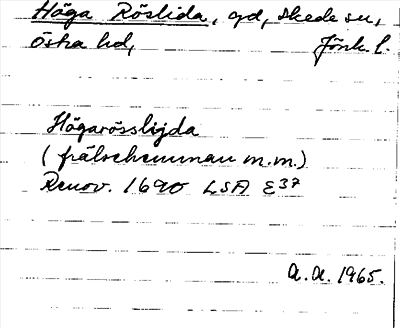 Höga Röslida, gd, Skede sn,
Östra hd, Jönk. l.
Högarösslijda
(frälsehemman m.m.)
Renov. 1690 LSA E37
A.A. 1965.